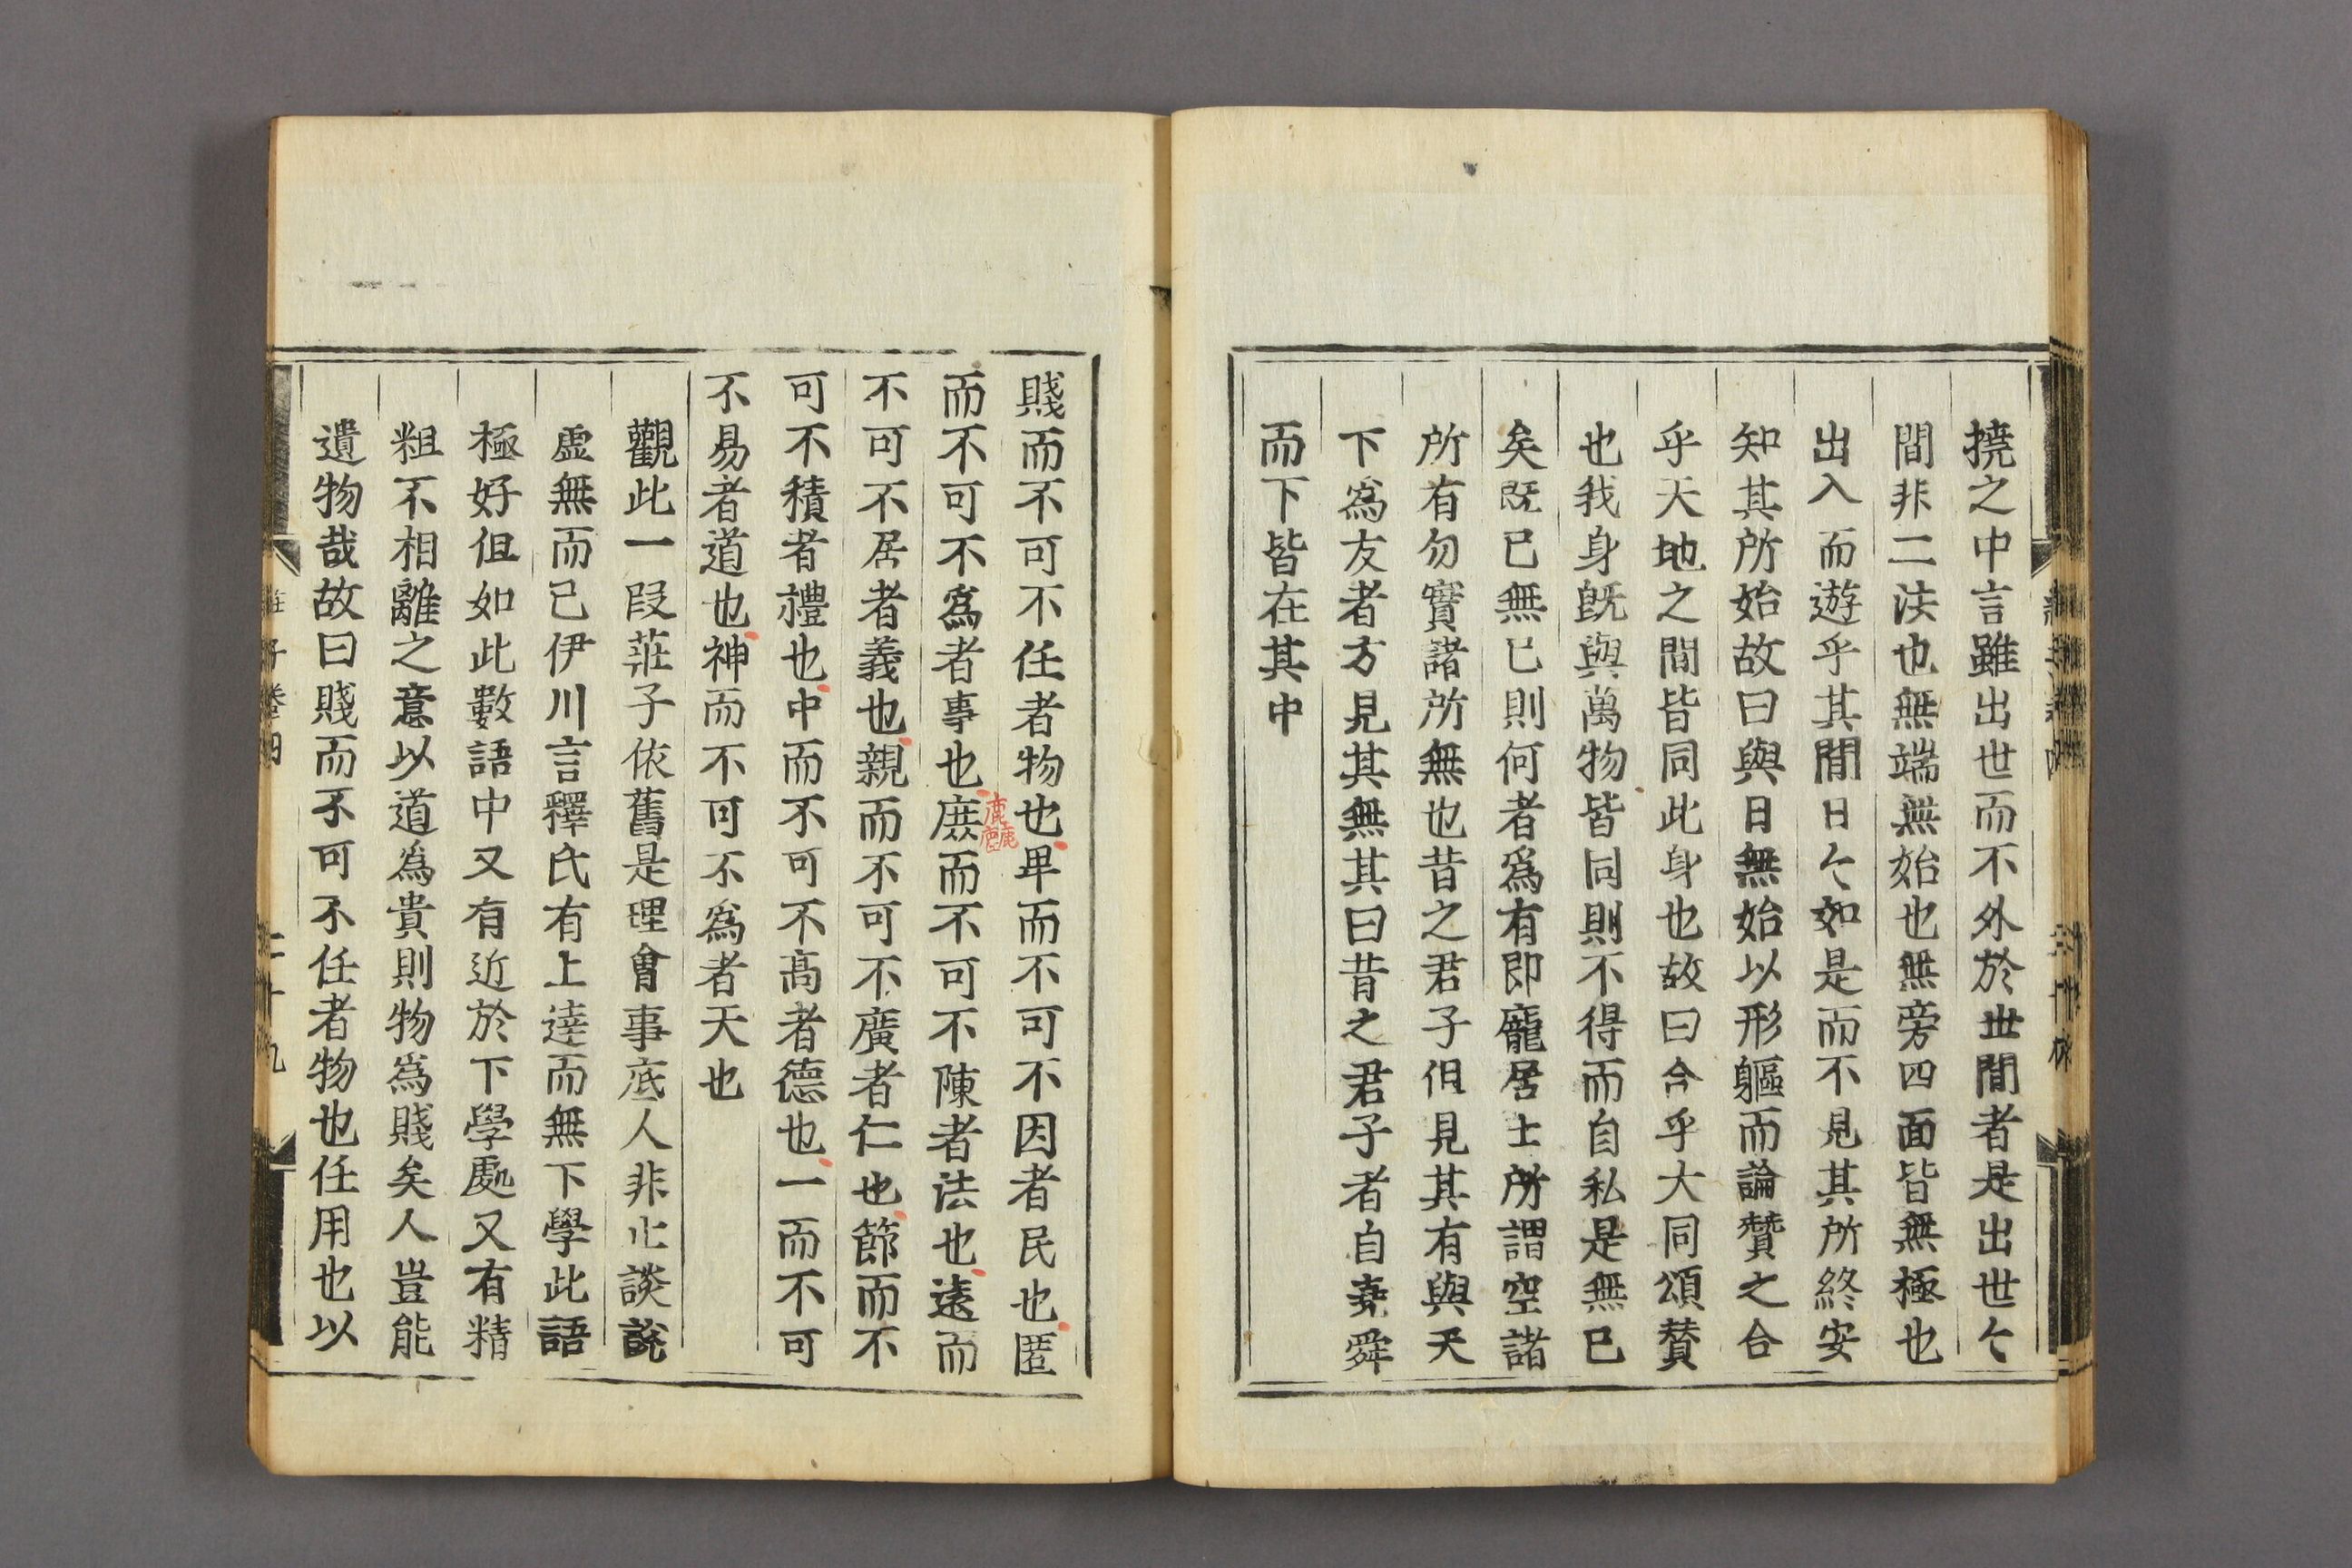 撓之中言雖出世而不外於世間者是出世亽
間非二法也無端無始也無旁四面皆無極也
出入而遊乎其間日亽如是而不見其所終安
知其所始故曰與日無始以形軀而論贊之合
乎天地之間皆同此身也故曰合乎大同頌賛
也我身旣與萬物皆同則不得而自私是無已
矣旣已無已則何者爲有即龐居士所謂空諸
所有勿實諸所無也昔之君子但見其有與天
下爲友者方見其無其曰昔之君子者自堯舜
而下皆在其中
賤而不可不任者物也卑而不可不因者民也匿
而不可不爲者事也麄而不可不陳者法也遠而
不可不居者義也親而不可不廣者仁也節而不
可不積者禮也中而不可不高者德也一而不可
不易者道也神而不可不爲者天也
觀此一段莊子依舊是理會事底人非止談說
虛無而已伊川言釋氏有上達而無下學此語
極好但如此數語中又有近於下學處又有精
粗不相離之意以道爲貴則物爲賤矣人豈能
遺物哉故曰賤而不可不任者物也任用也以
莊子卷四
二十九